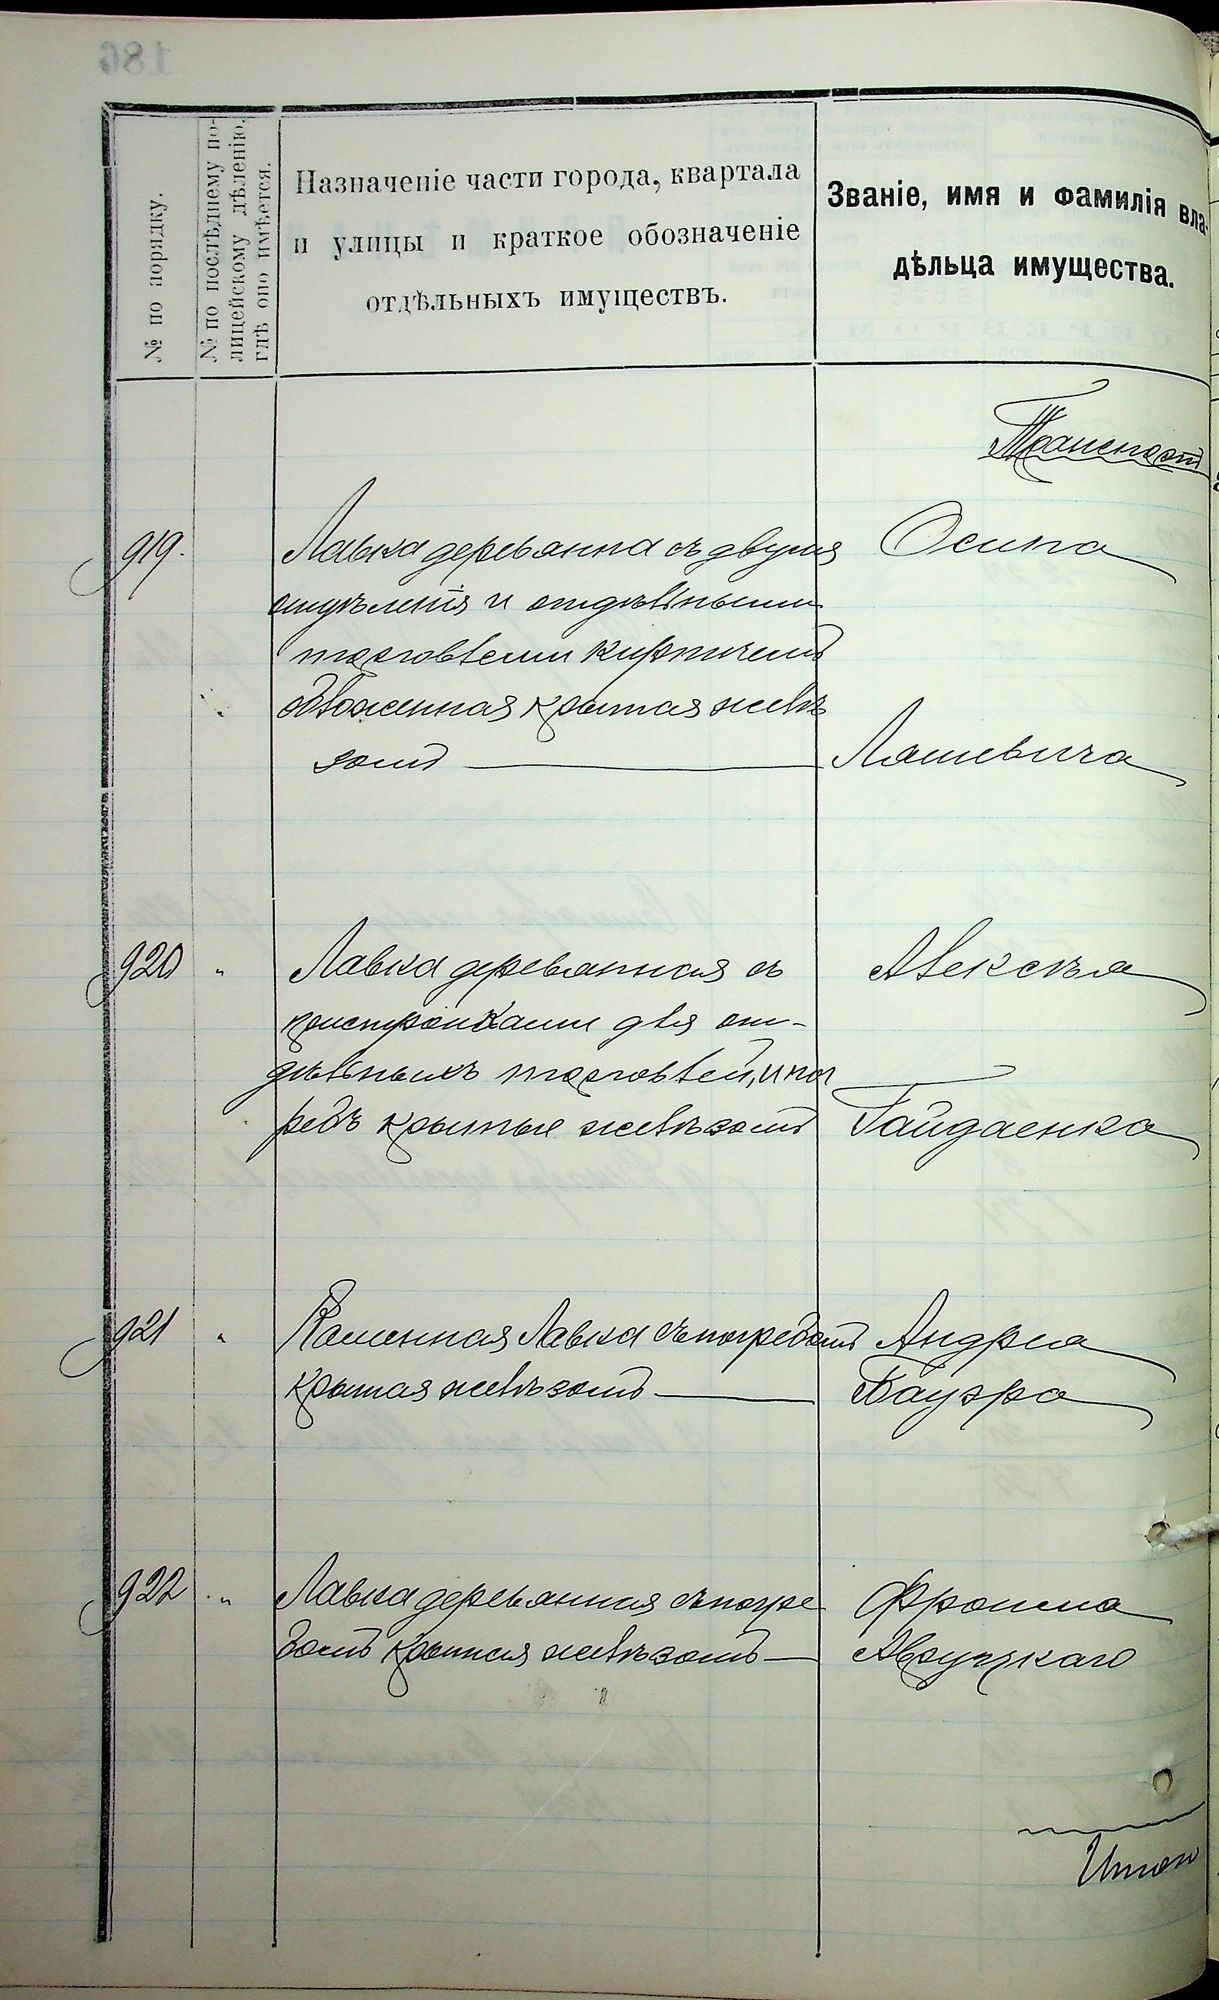 № по порядку.
№ по послѣднему по-
лицейскому дѣленію,
гдѣ оно имѣется.
Назначеніе части города, квартала
и улицы и краткое обозначеніе
отдѣльныхъ имуществъ.
Званіе, имя и фамилія вла-
дѣльца имущества.
Транспорт
919. Лавка деревянна съ двумя Осипа
и отдѣльными
торговлями кирпичемъ
обложенная крытая желѣ
зомъ Ляшевича
920 " Лавка деревянная съ Алексѣя
пристройками для от-
дѣльныхъ торговлей, и пог
ребъ крытые желѣзомъ Гайдаенка
921 " Каменная Лавка съ погребомъ Андрея
крытая желѣзомъ Бауэра
922 " Лавка деревянная съ погре Фроима
бомъ крытая желѣзомъ Авруцкаго
Итого